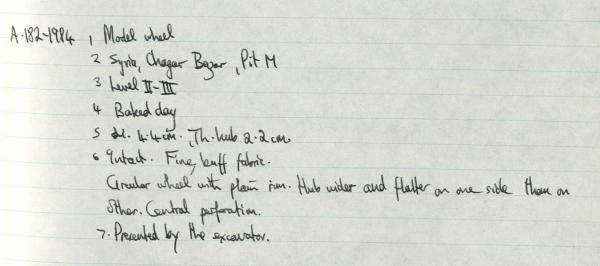 A.182-1984 1 Model wheel
2 Syria, Chagar Bazar, Pit M
3 Level II-III
4 Baked clay
5 d. 4.4cm. Th. hub 2.2cm.
6 Intact. Fine, buff fabric.
Circular wheel with plain rim. Hub wider and flatter on one side than on
other. Central perforation.
7. Presented by the excavator.